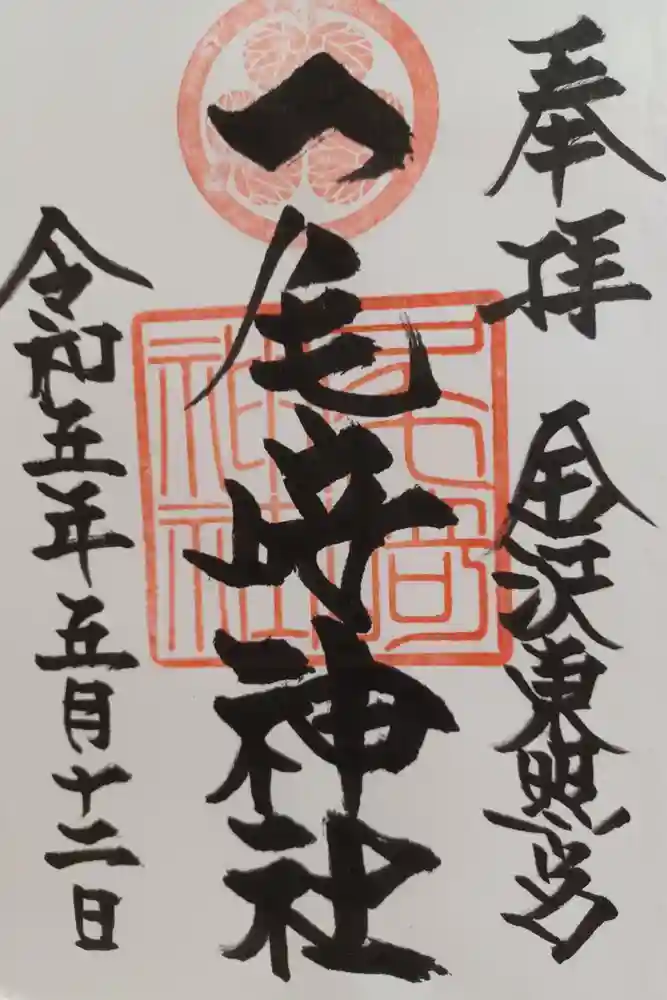 奉拝
金沢東照宮
尾崎神社
令和五年五月十二日
尾崎
神社